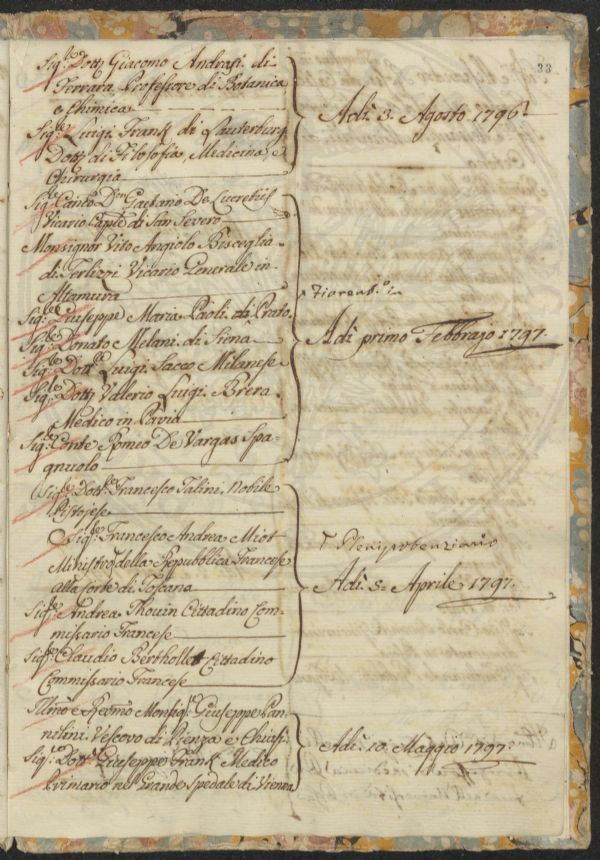 33
Sig.r Dott.r Giacomo Andrasi di
Ferrara Professore di Botanica
e Chimica
Sig.r Luigi Frank di Lauterburg
Dott.r di Filosofia, Medicina, e
Chirurgia
Adì 3. Agosto 1796.
Sig.r Canco D.n Gaetano De Lucretiis
Vicario Cap.le di San Severo
Monsignor Vito Angiolo Bisceglia
di Terlizzi Vicario Generale in
Altamura
Sig.r Giuseppe Maria Paoli di Prato
Sig.r Donato Melani di Siena
Sig.r Dott.r Luigi Sacco Milanese
Sig.r Dott.r Valerio Luigi Brera
Medico in Pavia
Sig.r Conte Romeo De Vargas Spa-
gnuolo
Adì primo Febbrajo 1797.
Sig.r Dott.r Francesco Talini, Nobile
Pistojese
Sig.r Francesco Andrea Miot
Ministro della Repubblica Francese
alla Corte di Toscana
Plenipotenziario
Sig.r Andrea Thouin Cittadino Com-
missario Francese
Sig.r Claudio Berthollet Cittadino
Commissario Francese
Adì 5. Aprile 1797.
Illmo e Revmo Monsig.r Giuseppe Pan-
nilini Vescovo di Pienza e Chiusi
Sig.r Dott.r Giuseppe Frank Medico
Primario nel Grande Spedale di Vienna
Adì 10. Maggio 1797.